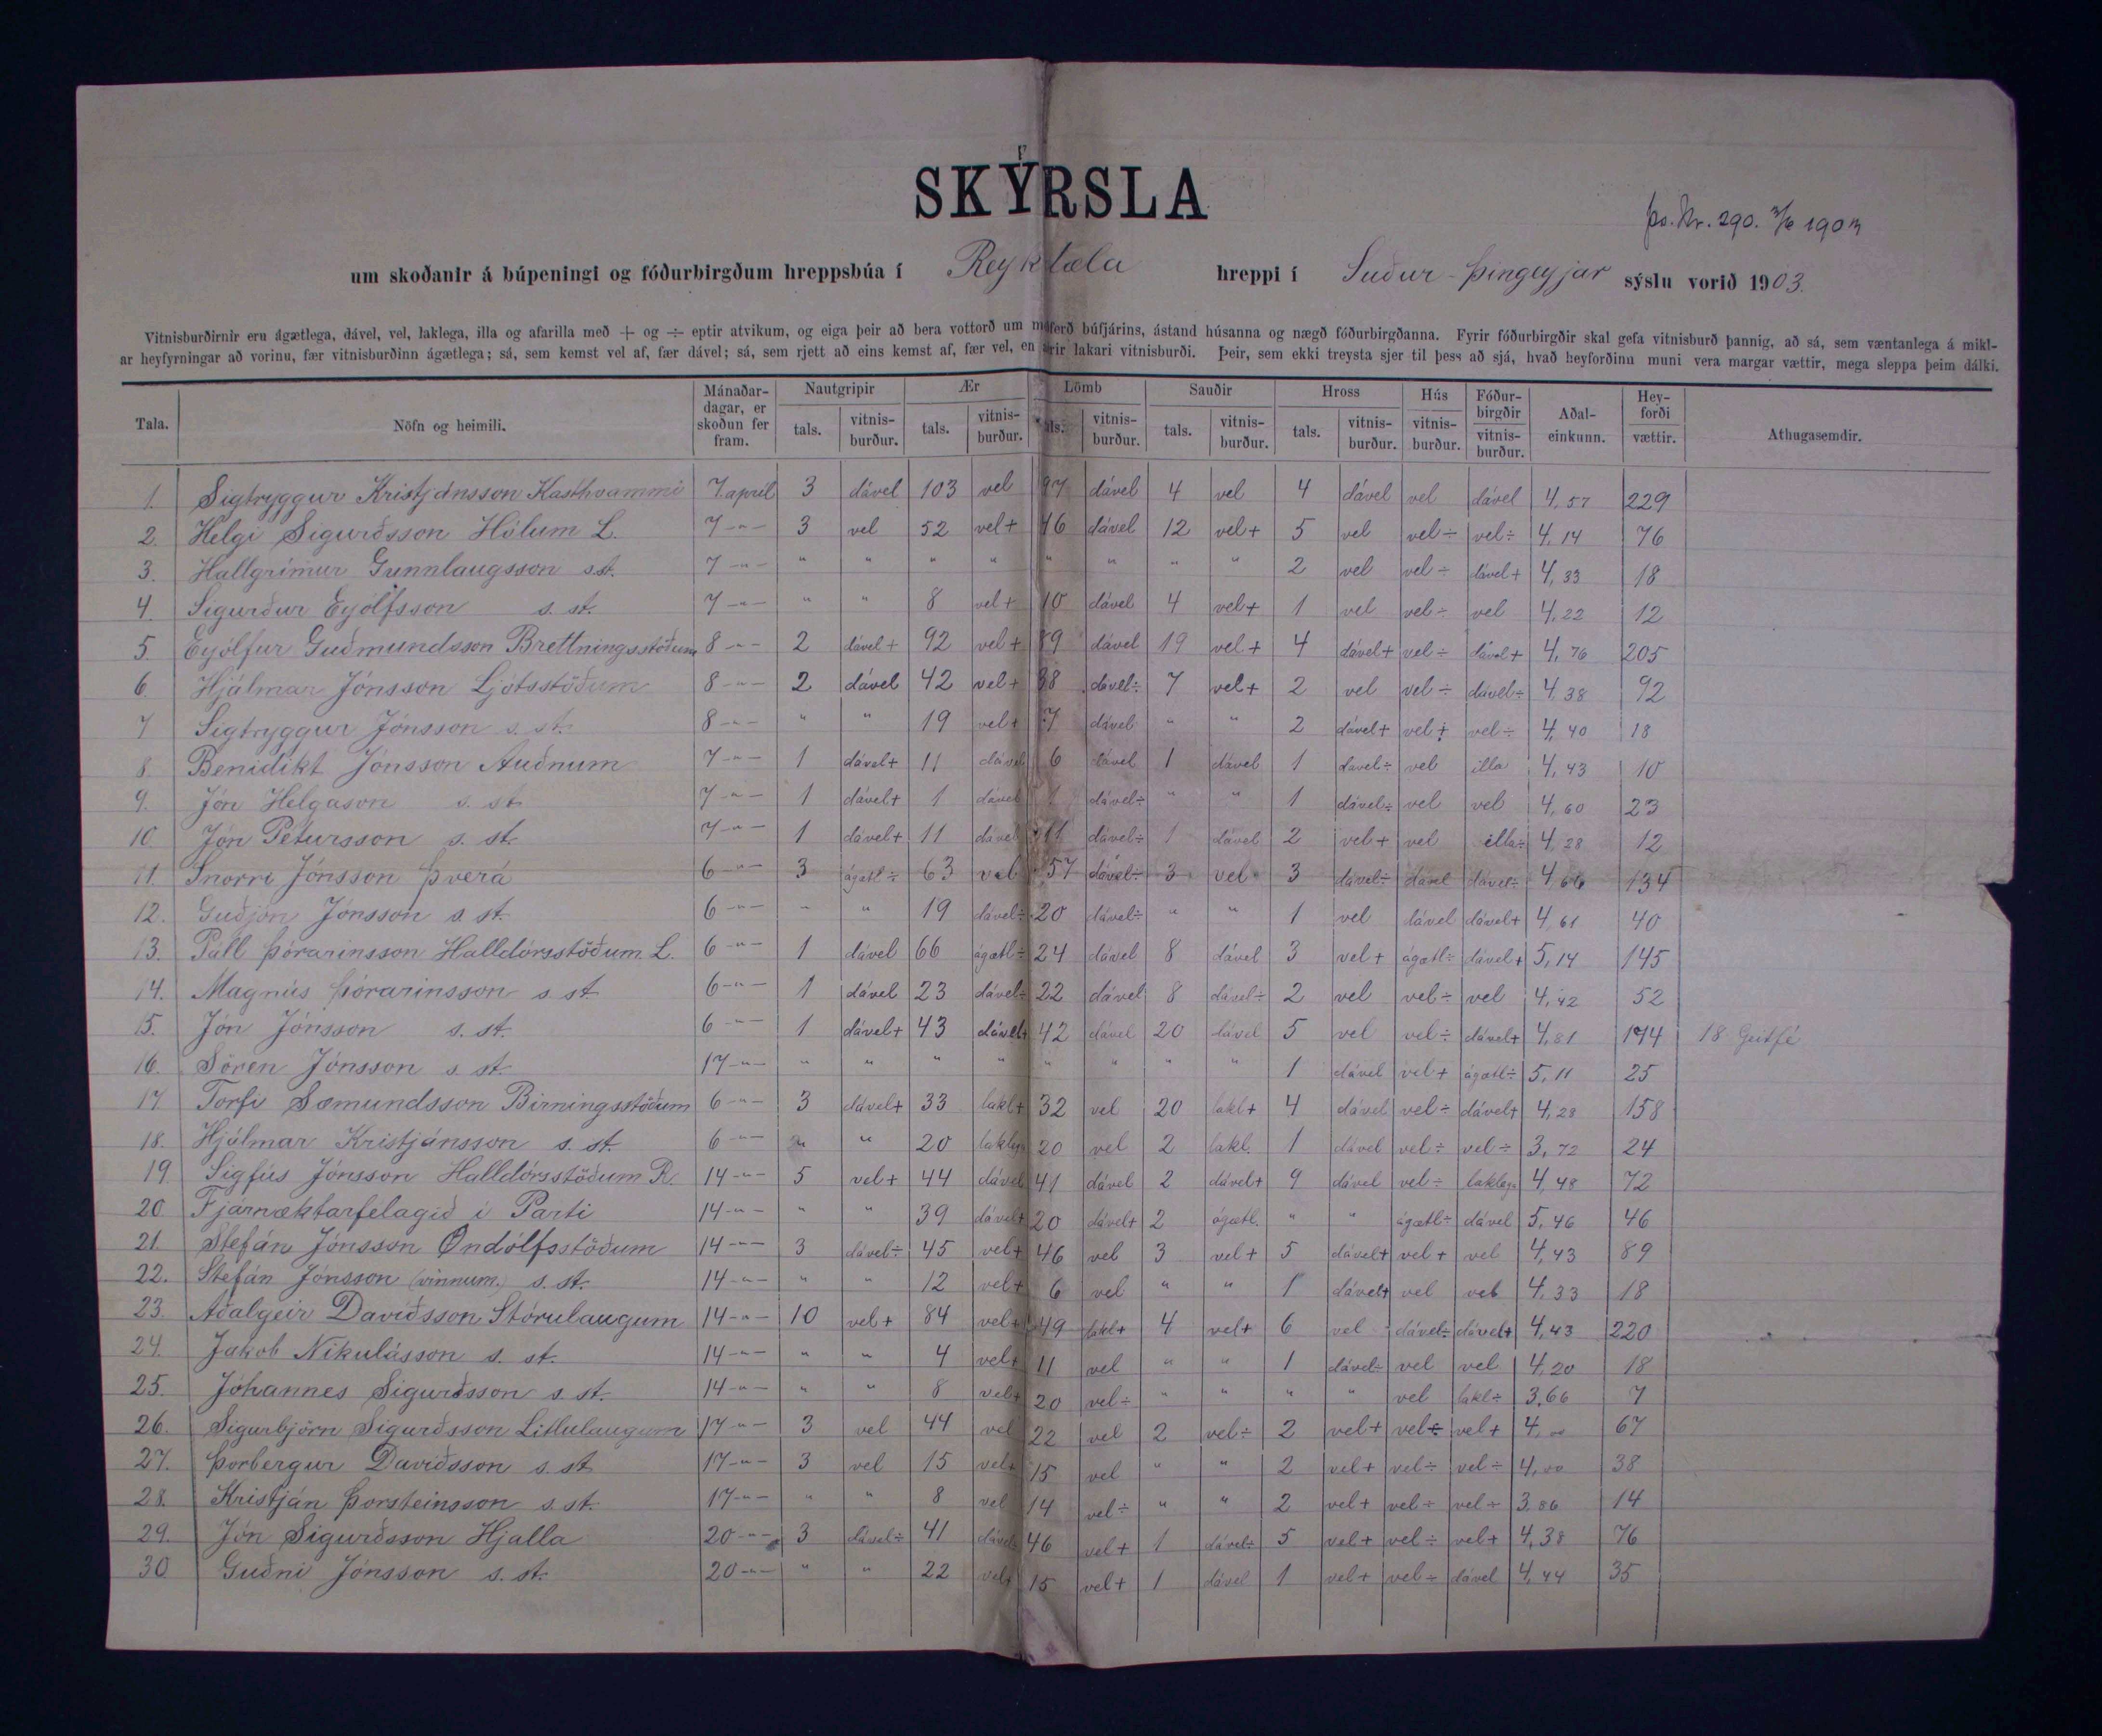 SKÝRSLA
þs. Nr. 290. 1903
um skoðanir á búpeningi og fóðurbirgðum hreppsbúa í Reykdæla hreppi í Suður-Þingeyjar sýslu vorið 1903.
Vitnisburðirnir eru ágætlega, dável, vel, laklega, illa og afarilla með + og ÷ eptir atvikum, og eiga þeir að bera vottorð um meðferð búfjárins, ástand húsanna og nægð fóðurbirgðanna. Fyrir fóðurbirgðir skal gefa vitnisburð þannig, að sá, sem væntanlega á mikl-
ar heyfyrningar að vorinu, fær vitnisburðinn ágætlega; sá, sem kemst vel af, fær dável; sá, sem rjett að eins kemst af, fær vel, en aðrir lakari vitnisburði. Þeir, sem ekki treysta sjer til þess að sjá, hvað heyforðinu muni vera margar vættir, mega sleppa þeim dálki.
Tala. Nöfn og heimili. Mánaðar-dagar, er skoðun fer fram. Nautgripir Ær Lömb Sauðir Hross Hús Fóður-birgðir Aðal-einkunn. Hey-forði vættir. Athugasemdir.
tals. vitnis-burður. tals. vitnis-burður. tals. vitnis-burður. tals. vitnis-burður. tals. vitnis-burður. vitnis-burður. vitnis-burður.
1. Sigtryggur Kristjánsson Kasthvammi 7. apríl 3 dável 103 vel 97 dável 4 vel 4 dável vel dável 4,57 229
2. Helgi Sigurðsson Hólum L. 7 -"- 3 vel 52 vel+ 46 dável 12 vel+ 5 vel vel÷ vel÷ 4,14 76
3. Hallgrímur Gunnlaugsson s.st. 7 -"- " " " " " " " " 2 vel vel÷ dável+ 4,33 18
4. Sigurður Eyólfsson s. st. 7 -"- " " 8 vel+ 10 dável 4 vel+ 1 vel vel÷ vel 4,22 12
5. Eyólfur Guðmundsson Brettningsstöðum 8 -"- 2 dável+ 92 vel+ 89 dável 19 vel+ 4 dável+ vel÷ dável+ 4,76 205
6. Hjálmar Jónsson Ljótsstöðum 8 -"- 2 dável 42 vel+ 38 dável÷ 7 vel+ 2 vel vel÷ dável÷ 4,38 92
7 Sigtryggur Jónsson s. st. 8 -"- " " 19 vel+ 7 dável " " 2 dável+ vel+ vel÷ 4,40 18
8. Benidikt Jónsson Auðnum 7 -"- 1 dável+ 11 dável 6 dável 1 dável 1 dável÷ vel illa 4,43 10
9. Jón Helgason s. st. 7 -"- 1 dável+ 1 dável 1 dável÷ " " 1 dável÷ vel vel 4,60 23
10. Jón Petursson s. st. 7 -"- 1 dável+ 11 dável 11 dável÷ 1 dável 2 vel+ vel illa÷ 4,28 12
11. Snorri Jónsson Þverá 6 -"- 3 ágætl÷ 63 vel 57 dável÷ 3 vel 3 dável÷ dável dável÷ 4,66 134
12. Guðjón Jónsson s st. 6 -"- " " 19 dável÷ 20 dável÷ " " 1 vel dável dável+ 4,61 40
13. Páll Þórarinsson Halldórsstöðum L. 6 -"- 1 dável 66 ágætl÷ 24 dável 8 dável 3 vel+ ágætl÷ dável+ 5,14 145
14. Magnús Þórarinsson s. st. 6 -"- 1 dável 23 dável÷ 22 dável 8 dável÷ 2 vel vel÷ vel 4,42 52
15. Jón Jónsson s. st. 6 -"- 1 dável+ 43 dável+ 42 dável 20 dável 5 vel vel÷ dável+ 4,81 174 18 Geitfé
16. Sören Jónsson s. st. 17 -"- " " " " " " " " 1 dável vel+ ágætl÷ 5,11 25
17 Torfi Sæmundsson Birningsstöðum 6 -"- 3 dável+ 33 lakl+ 32 vel 20 lakl+ 4 dável vel÷ dável+ 4,28 158
18. Hjálmar Kristjánsson s. st. 6 -"- " " 20 laklega 20 vel 2 lakl. 1 dável vel÷ vel÷ 3,72 24
19. Sigfús Jónsson Halldórsstöðum R. 14 -"- 5 vel+ 44 dável 41 dável 2 dável+ 9 dável vel÷ laklega 4,48 72
20 Fjárræktarfélagið í Parti 14 -"- " " 39 dável+ 20 dável+ 2 ágætl. " " ágætl÷ dável 5,46 46
21. Stefán Jónsson Öndólfsstöðum 14 -"- 3 dável÷ 45 vel+ 46 vel 3 vel+ 5 dável+ vel+ vel 4,43 89
22. Stefán Jónsson (vinnum.) s. st. 14 -"- " " 12 vel+ 6 vel " " 1 dável+ vel vel 4,33 18
23. Aðalgeir Davíðsson Stórulaugum 14 -"- 10 vel+ 84 vel+ 49 lakl+ 4 vel+ 6 vel dável÷ dável+ 4,43 220
24. Jakob Nikulásson s. st. 14 -"- " " 4 vel+ 11 vel " " 1 dável÷ vel vel 4,20 18
25. Jóhannes Sigurðsson s. st. 14 -"- " " 8 vel+ 20 vel÷ " " " " vel lakl÷ 3,66 7
26. Sigurbjörn Sigurðsson Litlulaugum 17 -"- 3 vel 44 vel 22 vel 2 vel÷ 2 vel+ vel÷ vel+ 4,00 67
27. Þorbergur Davíðsson s. st 17 -"- 3 vel 15 vel+ 15 vel " " 2 vel+ vel÷ vel÷ 4,00 38
28. Kristján Þorsteinsson s. st. 17 -"- " " 8 vel 14 vel÷ " " 2 vel+ vel÷ vel÷ 3,86 14
29. Jón Sigurðsson Hjalla 20 -"- 3 dável÷ 41 dável÷ 46 vel+ 1 dável÷ 5 vel+ vel÷ vel+ 4,38 76
30 Guðni Jónsson s. st. 20 -"- " " 22 vel+ 15 vel+ 1 dável 1 vel+ vel÷ dável 4,44 35